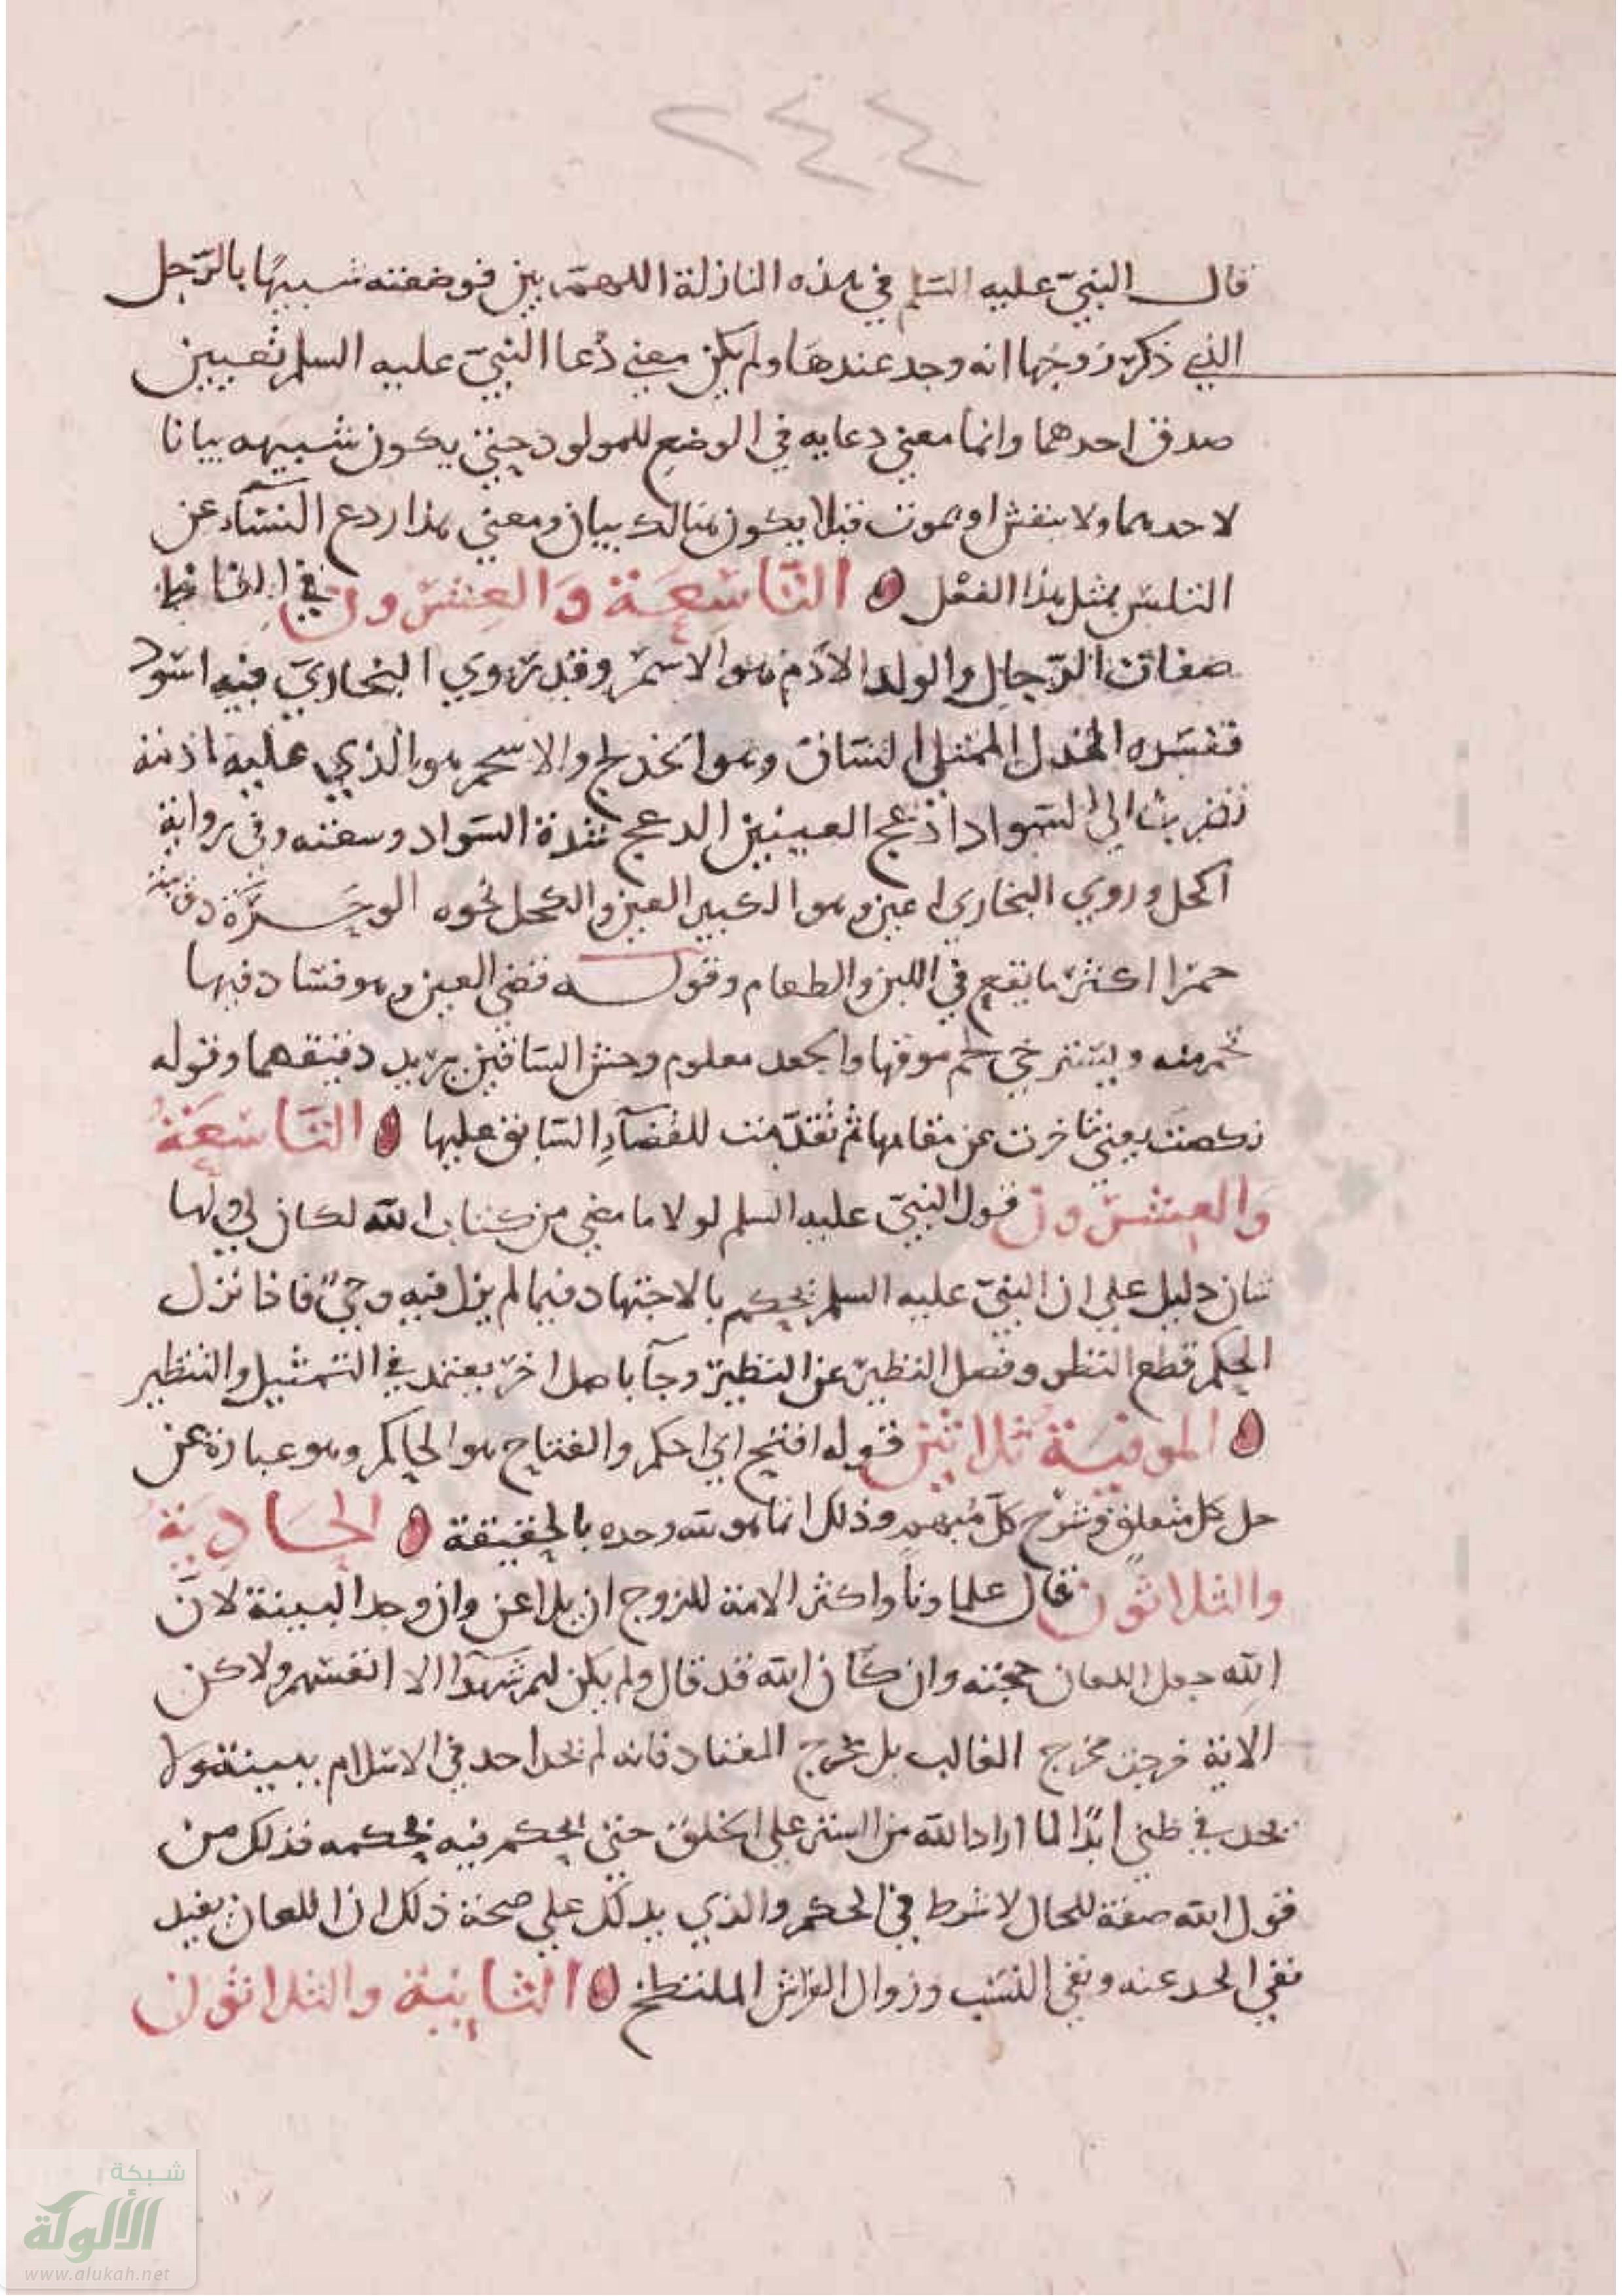 ٢٤٤
قال النبي عليه السلم في هذه النازلة اللهم بين فوضعته شبيها بالرجل
الذي ذكر زوجها انه وجد عندها ولم يكن معنى دعا النبي عليه السلم تعيين
صدق احدهما وانما معنى دعايه في الوضع للمولود حتى يكون شبيهه بيانا
لاحدهما ولا ينفش او يموت فلا يكون هنالك بيان ومعنى هذا ردع النساء عن
التلبس بمثل هذا الفعل التاسعة والعشرون في الفاظ
صفات الرجال والولد الادم هو الاسمر وقد روي البخاري فيه اسود
ففسره الخدل الممتلي الساق وهو الخدلج والاسحم هو الذي عليه
تضرب الى السواد ادعج العينين الدعج شدة السواد وسعته وفي رواية
اكحل وروي البخاري اعين وهو الكبير العين والكحل نحوه الوحرة دويبة
حمرا اكثر ما يقع في اللبن والطعام وقوله قضي العين وهو فساد فيها
تحمر منه ويسترخي لحم موقها والجعد معلوم وحمش الساقين يريد دقيقهما وقوله
نكصت يعني تاخرت عن مقامها ثم تقدمت للقضاء السابق عليها التاسعة
والعشرون قول النبي عليه السلم لولا ما مضى من كتاب الله لكان لي ولها
شان دليل على ان النبي عليه السلم يحكم بالاجتهاد فيما لم ينزل فيه وحي فاذا نزل
الحكم قطع النظر وفصل النظير عن النظير وجآ باصل اخر يعتمد في التمثيل والتنظير
الموفية ثلاثين قوله افتح اي احكم والفتاح هو الحاكم وهو عبارة عن
حل كل متعلق وشرح كل مبهم وذلك انما هو لله وحده بالحقيقة الحادية
والثلاثون قال علماونا واكثر الامة للزوج ان يلاعن وان وجد البينة لان
الله جعل اللعان حجته وان كان الله قد قال ولم يكن لهم شهدآ الا انفسهم ولاكن
الاية خرجت مخرج الغالب بل مخرج المعتاد فانه لم يحد احد في الاسلام ببينة ولا
يحد في ظني ابدا لما اراد الله من الستر على الخلق حتى يحكم فيه بحكمه فذلك من
قول الله صفة للحال لا شرط في الحكم والذي يدلك على صحة ذلك ان اللعان يفيد
نفي الحد عنه ونفي النسب وزوال الفراش الملتطخ الثانية والثلاثون
شبكة
الألوكة
www.alukah.net